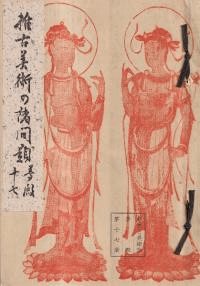 推古美術の諸問題
夢殿
十七
第十七冊